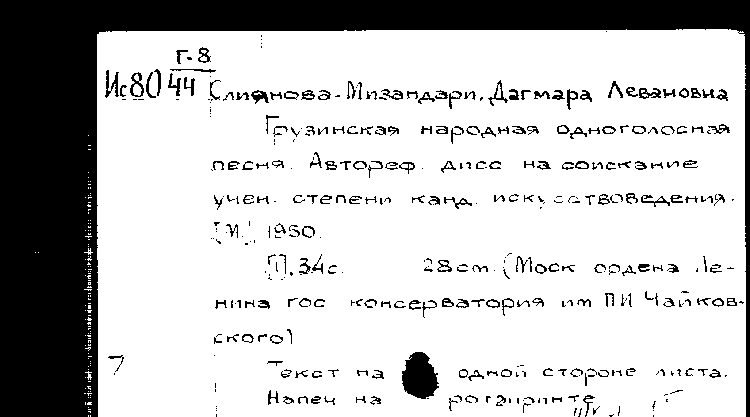 Г-8
Ис80 44 Слиянова-Мизандари, Дагмара Левановна
Грузинская народная одноголосная
песня. Автореф. дисс на соискание
учен. степени канд. искусствоведения.
[М.] 1950.
[1], 34с. 28см. (Моск ордена Ле-
нина гос консерватория им П И Чайков-
ского)
7 Текст на одной стороне листа.
Напеч на ротапринте